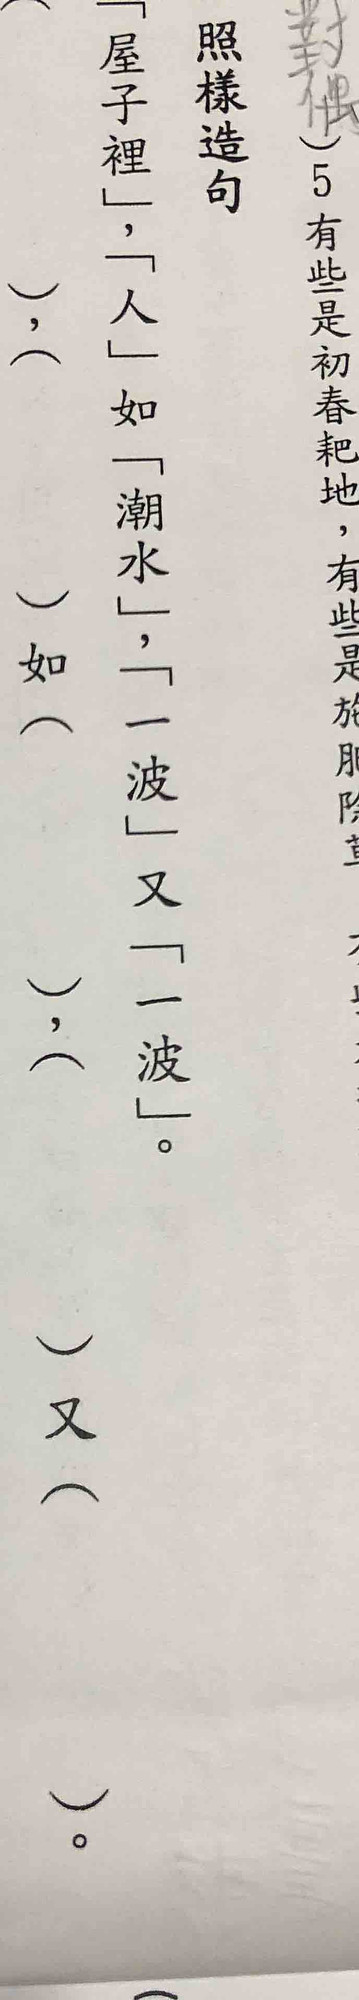 對偶）5有些是初春耙地，有些是施肥除草
照樣造句
「屋子裡」，「人」如「潮水」，「一波」又「一波」。
（　　），（　　）如（　　），（　　）又（　　）。